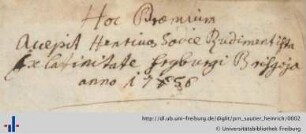 Hoc Præmium
Accepit Henricus Rudimentista
Ex Latinitate Fryburgi Brisgoja
anno 17
http://dl.ub.uni-freiburg.de/diglit/prn_sautier_heinrich/0002
© Universitätsbibliothek Freiburg